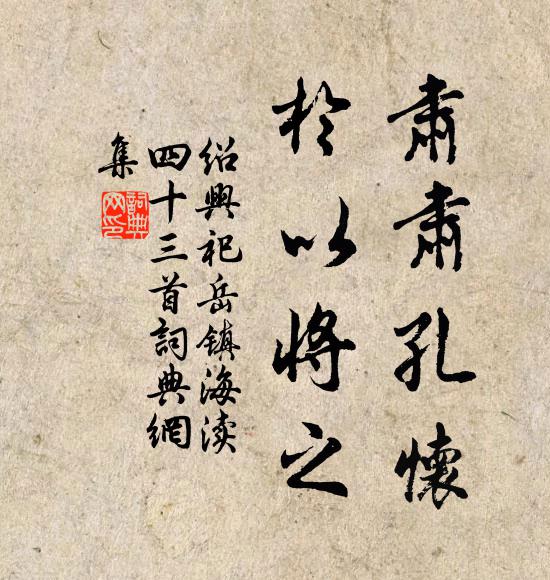 肅肅孔懷
於以將之
紹興祀岳鎮海渎
四十三首詞典網
集
詞典
网印